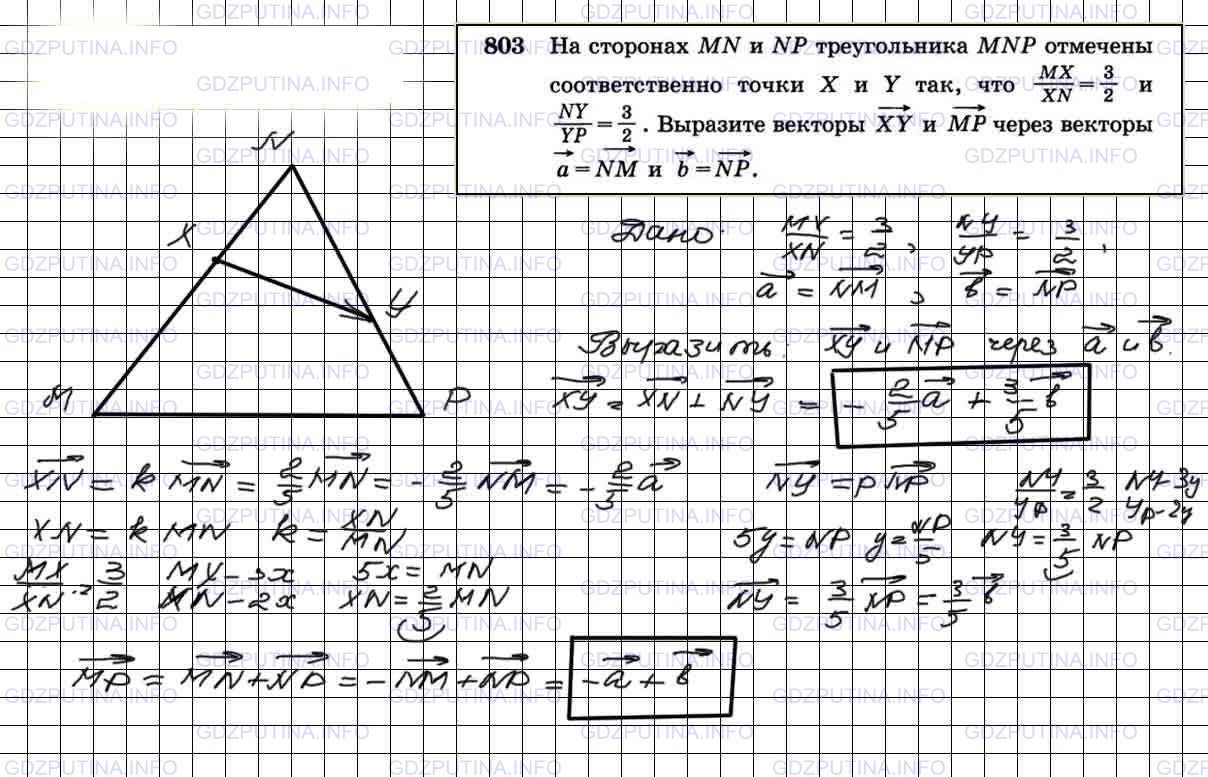 803 На сторонах MN и NP треугольника MNP отмечены
соответственно точки X и Y так, что MX/XN = 3/2 и
NY/YP = 3/2. Выразите векторы XY и MP через векторы
a = NM и b = NP.
N
X
Y
M
P
Дано: MX/XN = 3/2, NY/YP = 3/2,
a = NM, b = NP
Выразить: XY и MP через a и b.
XY = XN + NY = -2/5 a + 3/5 b
XN = k MN = 2/5 MN = -2/5 NM = -2/5 a
XN = k MN k = XN/MN
MX/XN = 3/2 MX - 3x 5x = MN
XN - 2x XN = 2/5 MN
NY = p NP NY/YP = 3/2 NY - 3y
YP - 2y
5y = NP y = NP/5 NY = 3/5 NP
NY = 3/5 NP = 3/5 b
MP = MN + NP = -NM + NP = -a + b
GDZPUTINA.INFO